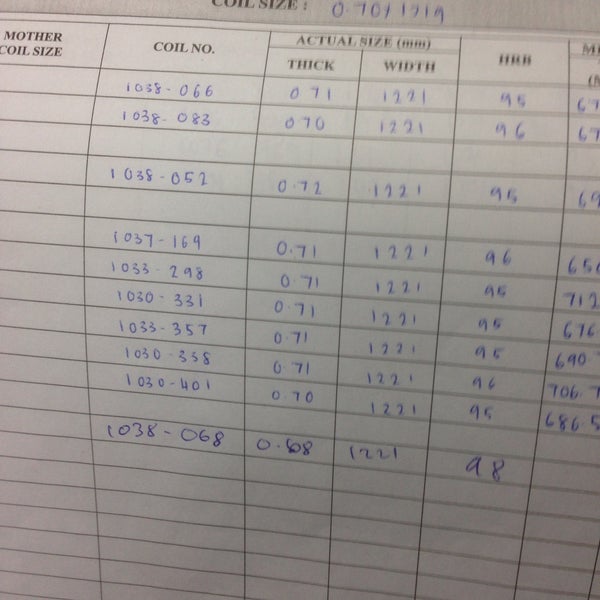 COIL SIZE : 0.70 / 1219
MOTHER COIL SIZE COIL NO. ACTUAL SIZE (mm) HRB
THICK WIDTH
1038-066 0.71 1221 95
1038-083 0.70 1221 96
1038-052 0.72 1221 95
1037-169 0.71 1221 96
1033-298 0.71 1221 95
1030-331 0.71 1221 95
1033-357 0.71 1221 95
1030-338 0.71 1221 96
1030-401 0.70 1221 95
1038-068 1221 98